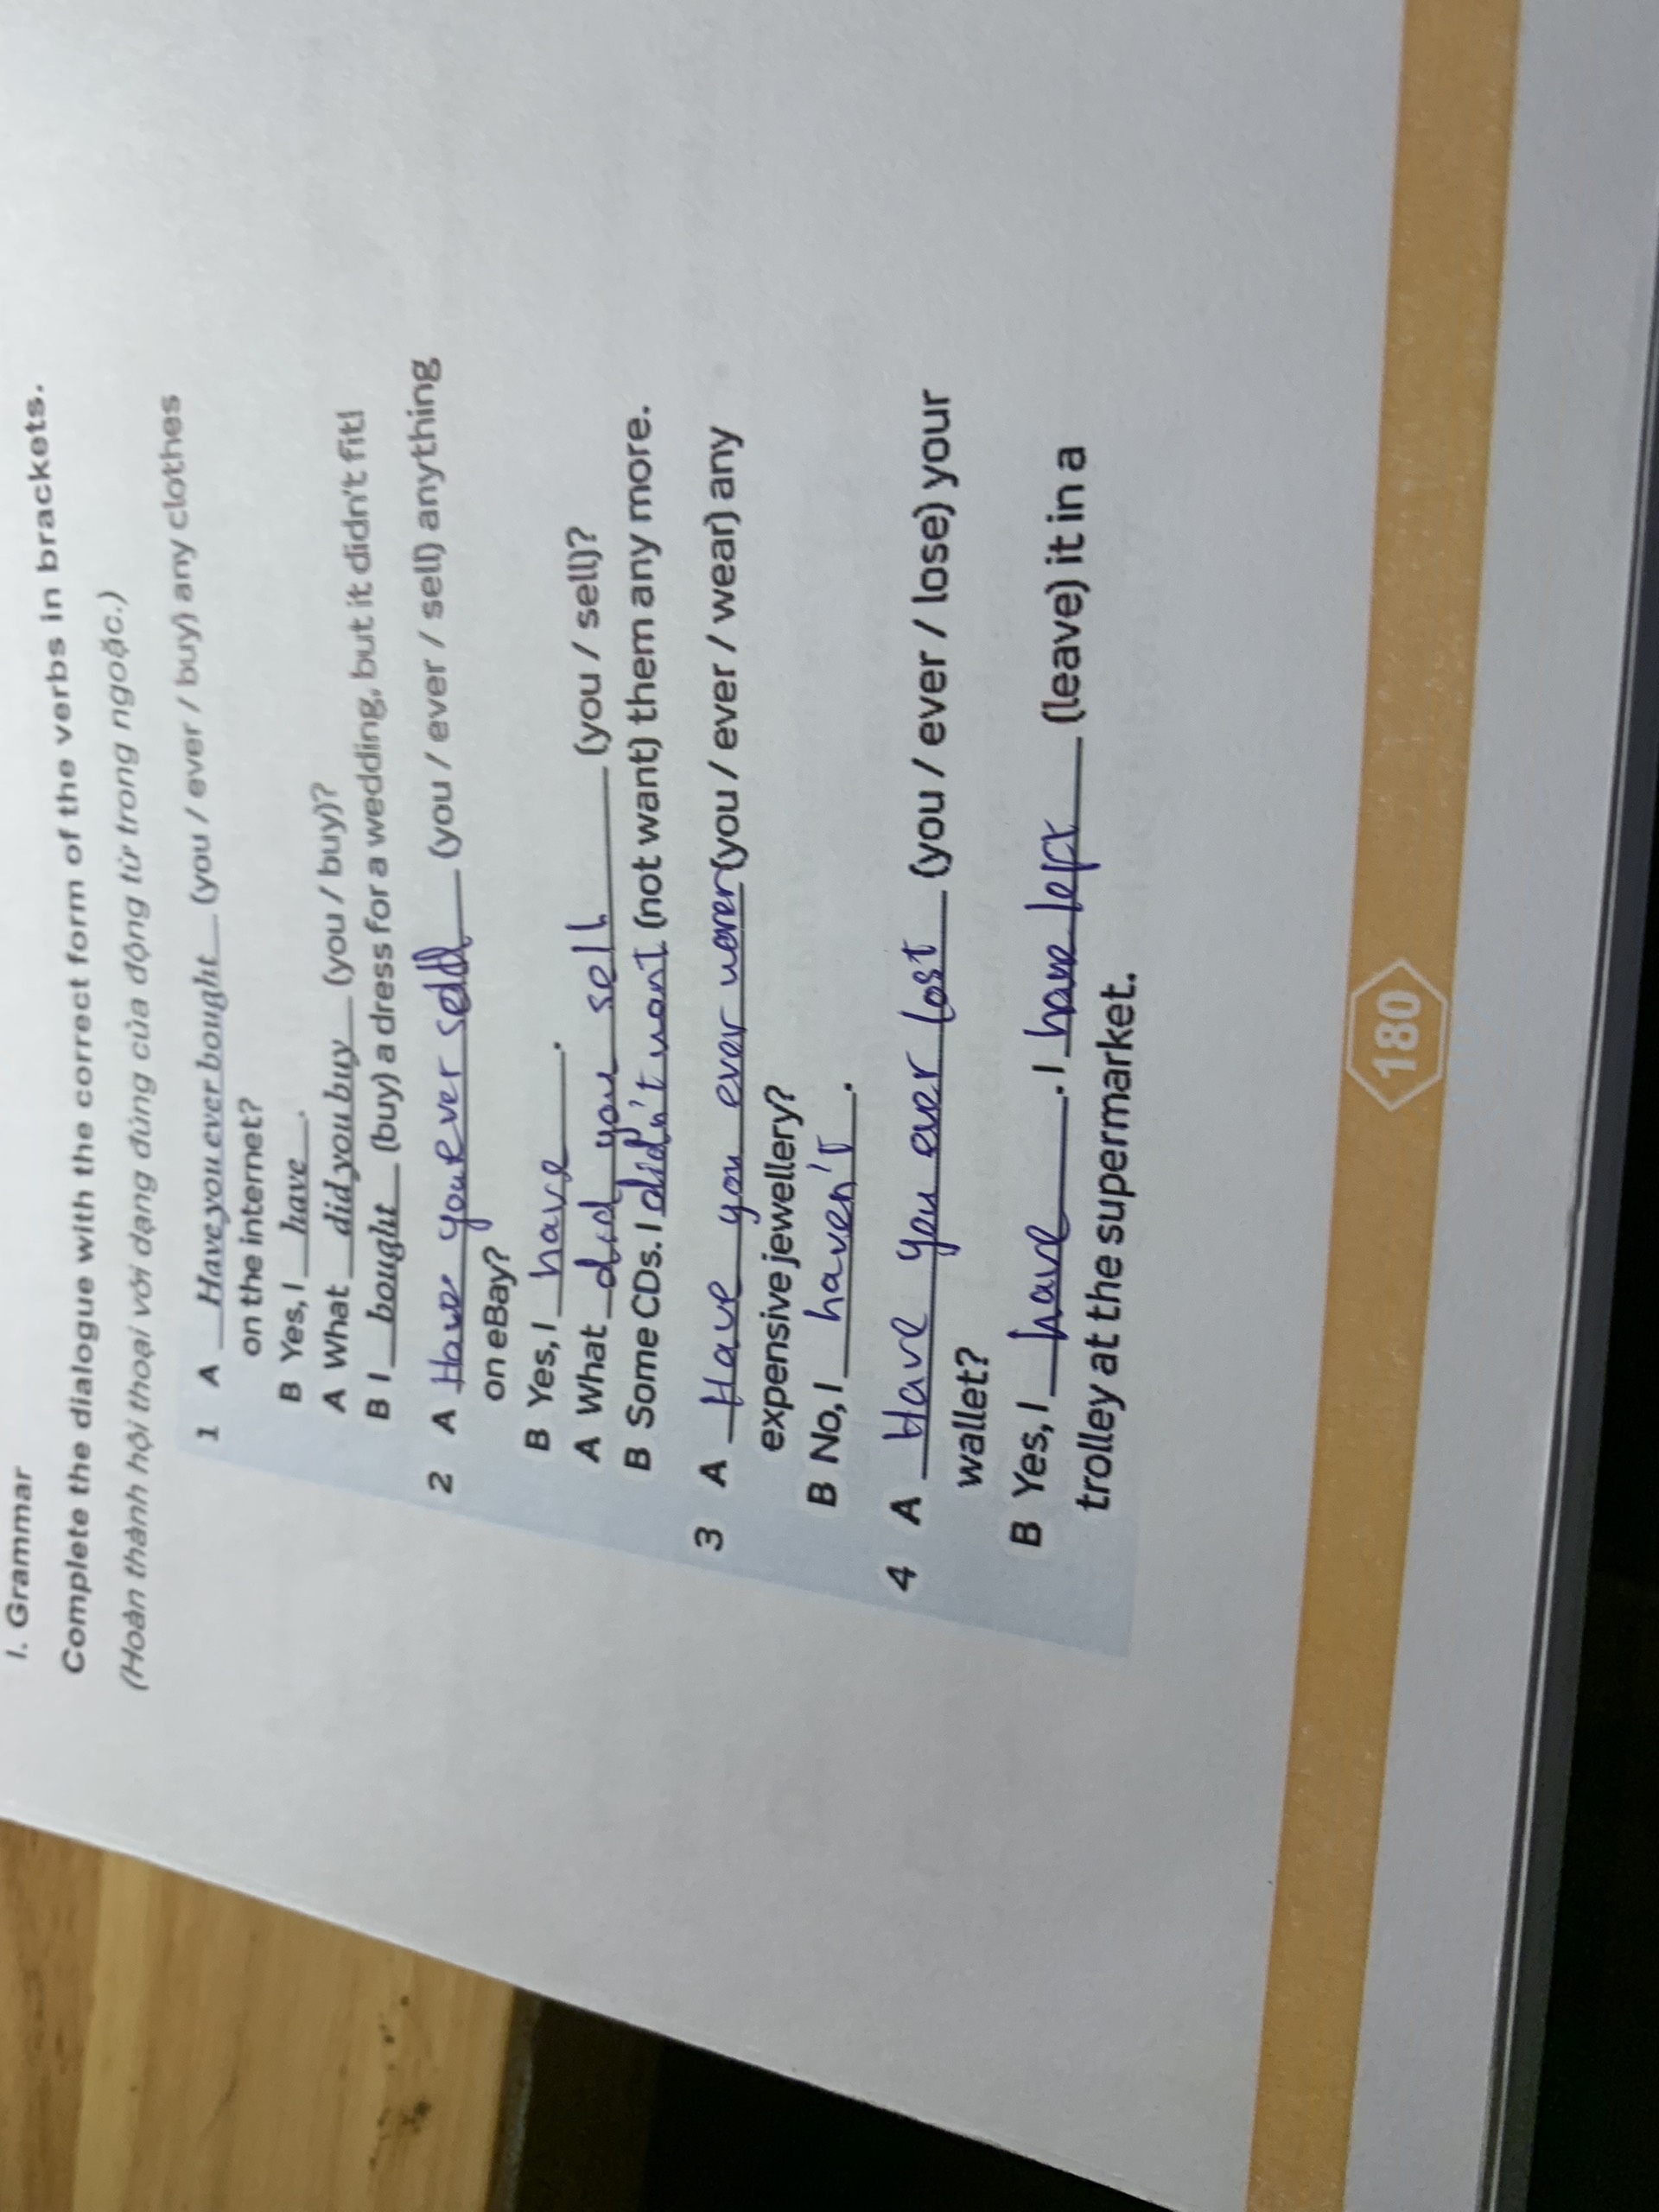 I. Grammar
Complete the dialogue with the correct form of the verbs in brackets.
(Hoàn thành hội thoại với dạng đúng của động từ trong ngoặc.)
1 A Have you ever bought (you / ever / buy) any clothes
on the internet?
B Yes, I have.
A What did you buy (you / buy)?
B I bought (buy) a dress for a wedding, but it didn't fit!
2 A Have you ever (you / ever / sell) anything
on eBay?
B Yes, I have.
A What did you sell (you / sell)?
B Some CDs. I didn't want (not want) them any more.
3 A Have you ever (you / ever / wear) any
expensive jewellery?
B No, I haven't.
4 A Have you ever lost (you / ever / lose) your
wallet?
B Yes, I have. I have left (leave) it in a
trolley at the supermarket.
180